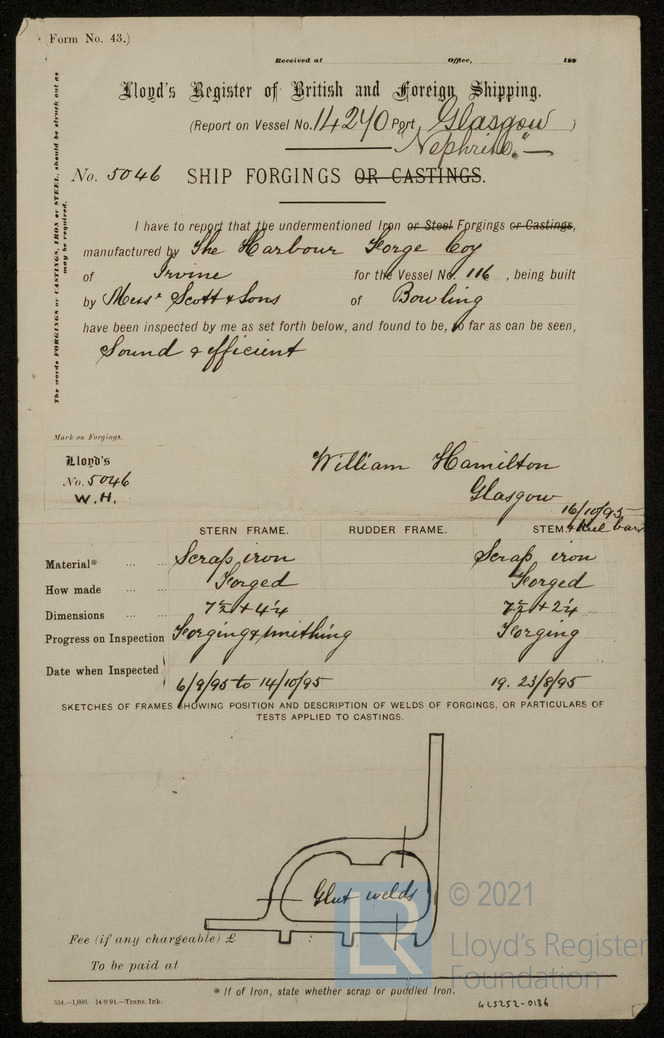 Form No. 43.)
Received at Office, 188
Lloyd's Register of British and Foreign Shipping.
(Report on Vessel No. 14240 Port Glasgow )
"Nephrite" —
No. 5046 SHIP FORGINGS OR CASTINGS.
The words FORGINGS or CASTINGS, IRON or STEEL, should be struck out as
may be required.
I have to report that the undermentioned Iron or Steel Forgings or Castings,
manufactured by The Harbour Forge Coy
of Irvine for the Vessel No. 116 , being built
by Messrs Scott & Sons of Bowling
have been inspected by me as set forth below, and found to be, so far as can be seen,
Sound & efficient
Mark on Forgings.
Lloyd's
No. 5046
W.H.
William Hamilton
Glasgow
16/10/95
STERN FRAME. RUDDER FRAME. STEM. & Keel bars
Material* ... ... Scrap iron Scrap iron
How made ... ... Forged Forged
Dimensions ... ... 7½ + 4¼ 7½ + 2¼
Progress on Inspection Forging & smithing Forging
Date when Inspected 6/9/95 to 14/10/95 19. 23/8/95
SKETCHES OF FRAMES SHOWING POSITION AND DESCRIPTION OF WELDS OF FORGINGS, OR PARTICULARS OF
TESTS APPLIED TO CASTINGS.
Glut welds
Fee (if any chargeable) £ :
To be paid at
LR
© 2021
Lloyd's Register
Foundation
* If of Iron, state whether scrap or puddled Iron.
554.—1,000. 14/9/94.—Trans. Ink.
GLS252-0136